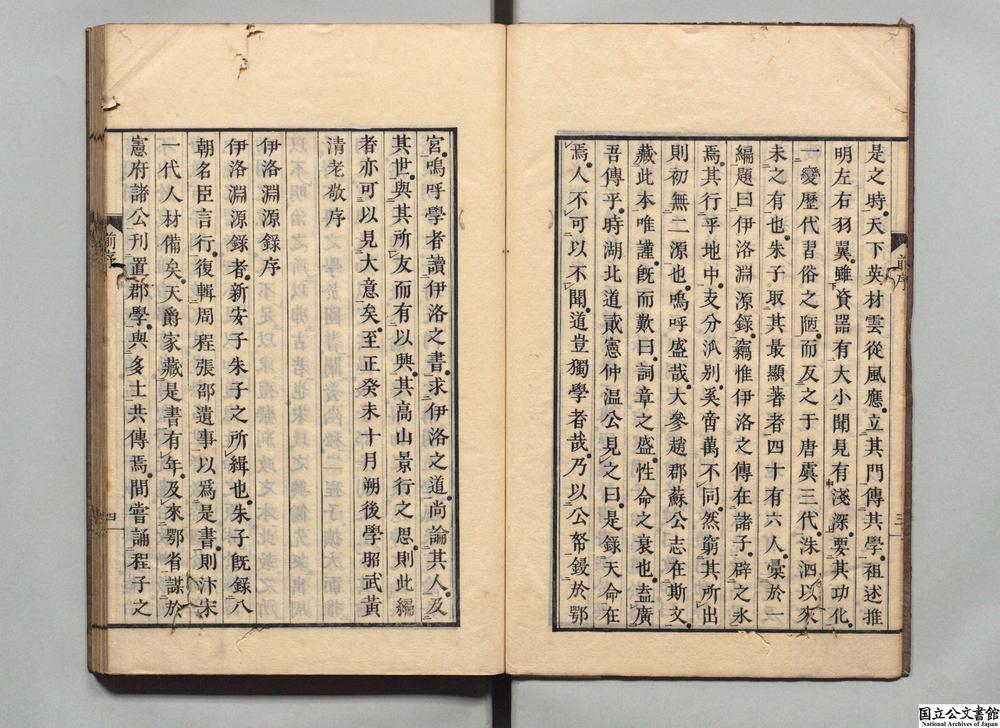 是之時天下英材雲從風應立其門傳其學祖述推
明左右羽翼雖資器有大小聞見有淺深要其功化
一變歷代習俗之陋而反之于唐虞三代洙泗以來
未之有也朱子取其最顯著者四十有六人彙於一
編題曰伊洛淵源錄竊惟伊洛之傳在諸子辟之水
焉其行乎地中支分泒别奚啻萬不同然窮其所出
則初無二源也嗚呼盛哉大參趙郡蘇公志在斯文
藏此本唯謹旣而歎曰詞章之盛性命之衰也盍廣
吾傳乎時湖北道貳憲仲温公見之曰是錄天命在
焉人不可以不聞道豈獨學者哉乃以公帑鋟於鄂
前序
三
宮嗚呼學者讀伊洛之書求伊洛之道尚論其人及
其世與其所友而有以興其高山景行之思則此編
者亦可以見大意矣至正癸未十月朔後學昭武黃
清老敬序
伊洛淵源錄序
伊洛淵源錄者新安子朱子之所緝也朱子旣錄八
朝名臣言行復輯周程張邵遺事以爲是書則汴宋
一代人材備矣天爵家藏是書有年及來鄂省謀於
憲府諸公刊置郡學與多士共傳焉間嘗誦程子之
前序
四
国立公文書館
National Archives of Japan